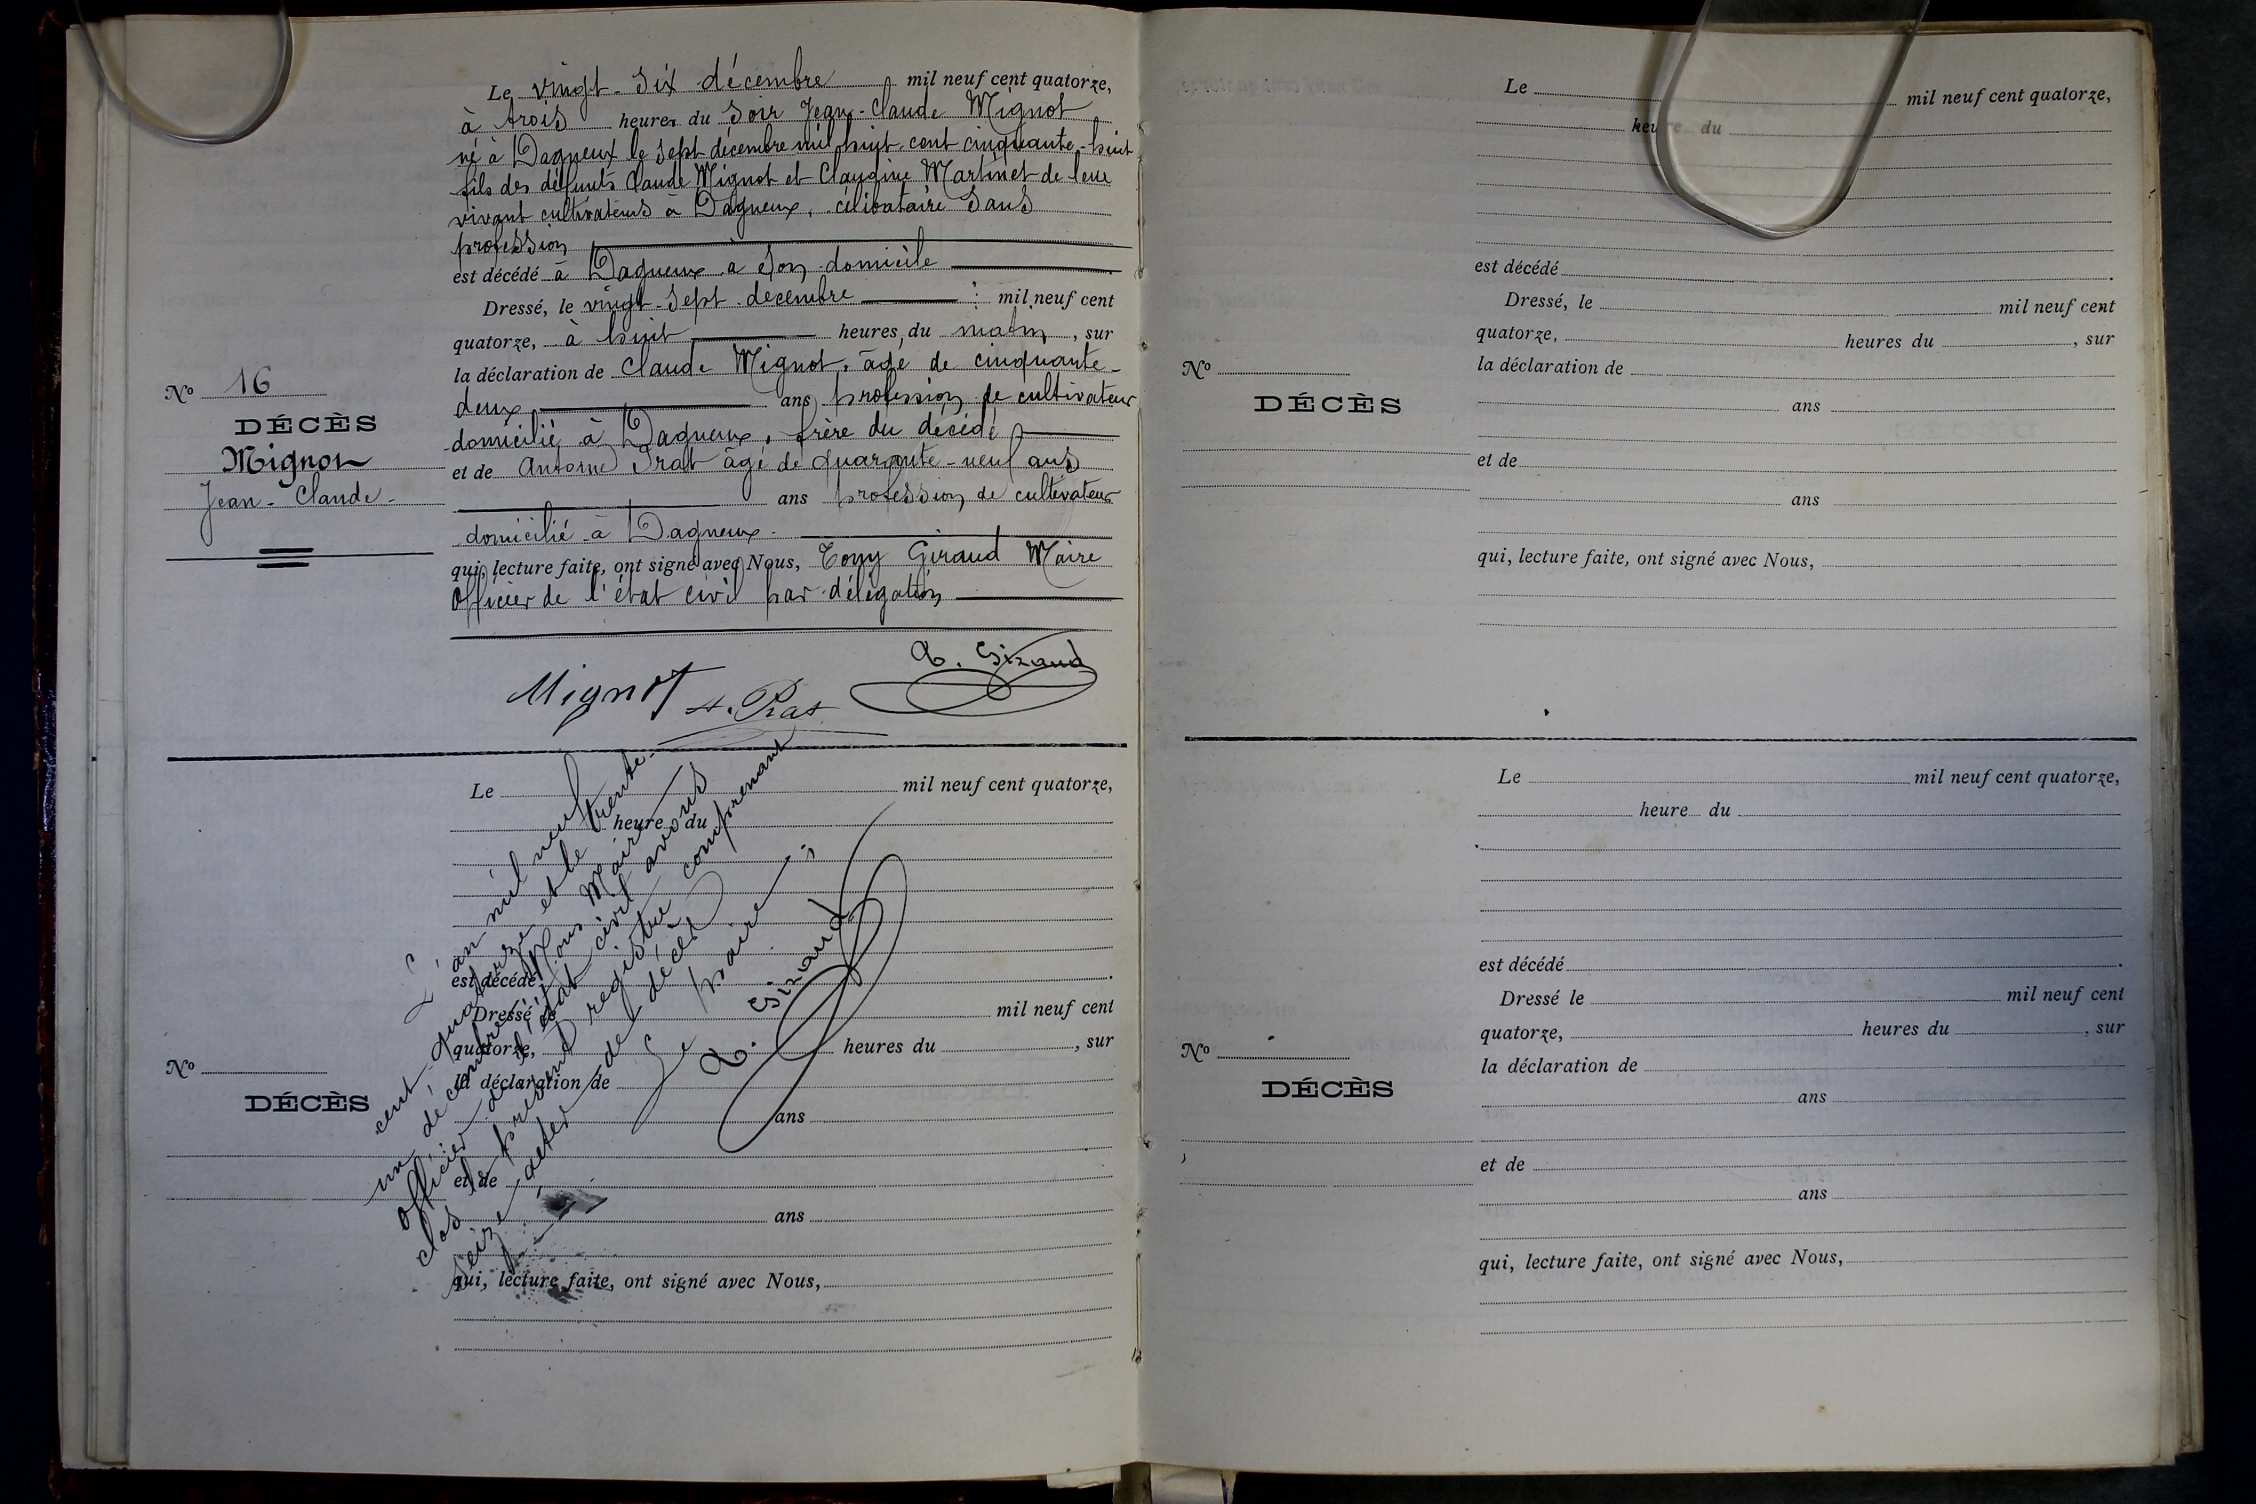 Le vingt-six décembre mil neuf cent quatorze,
à trois heures du soir Jean-Claude Mignot
né à Dagneux le sept décembre mil huit cent cinquante-huit
fils des défunts Claude Mignot et Claudine Martinet de leur
vivant cultivateurs à Dagneux, célibataire sans
profession
est décédé à Dagneux à son domicile
Dressé, le vingt-sept décembre mil neuf cent
quatorze, à huit heures du matin, sur
la déclaration de Claude Mignot, âgé de cinquante-
deux ans profession de cultivateur
domicilié à Dagneux, frère du décédé
et de Antoine Prat âgé de quarante-neuf ans
ans profession de cultivateur
domicilié à Dagneux
qui, lecture faite, ont signé avec Nous, Tony Giraud Maire
Officier de l'état civil par délégation
Nº 16
DÉCÈS
Mignot
Jean-Claude
Mignot A. Prat T. Giraud
Le mil neuf cent quatorze,
heure du
est décédé
Dressé le mil neuf cent
quatorze, heures du , sur
la déclaration de
ans
et de
ans
qui, lecture faite, ont signé avec Nous,
Nº
DÉCÈS
L'an mil neuf
cent quatorze et le trente-
un décembre Nous Maire
officier de l'état civil avons
clos le présent registre comprenant
seize actes de décès
Le Maire
T. Giraud
Le mil neuf cent quatorze,
heure du
est décédé
Dressé, le mil neuf cent
quatorze, heures du , sur
la déclaration de
ans
et de
ans
qui, lecture faite, ont signé avec Nous,
Nº
DÉCÈS
Le mil neuf cent quatorze,
heure du
est décédé
Dressé le mil neuf cent
quatorze, heures du , sur
la déclaration de
ans
et de
ans
qui, lecture faite, ont signé avec Nous,
Nº
DÉCÈS